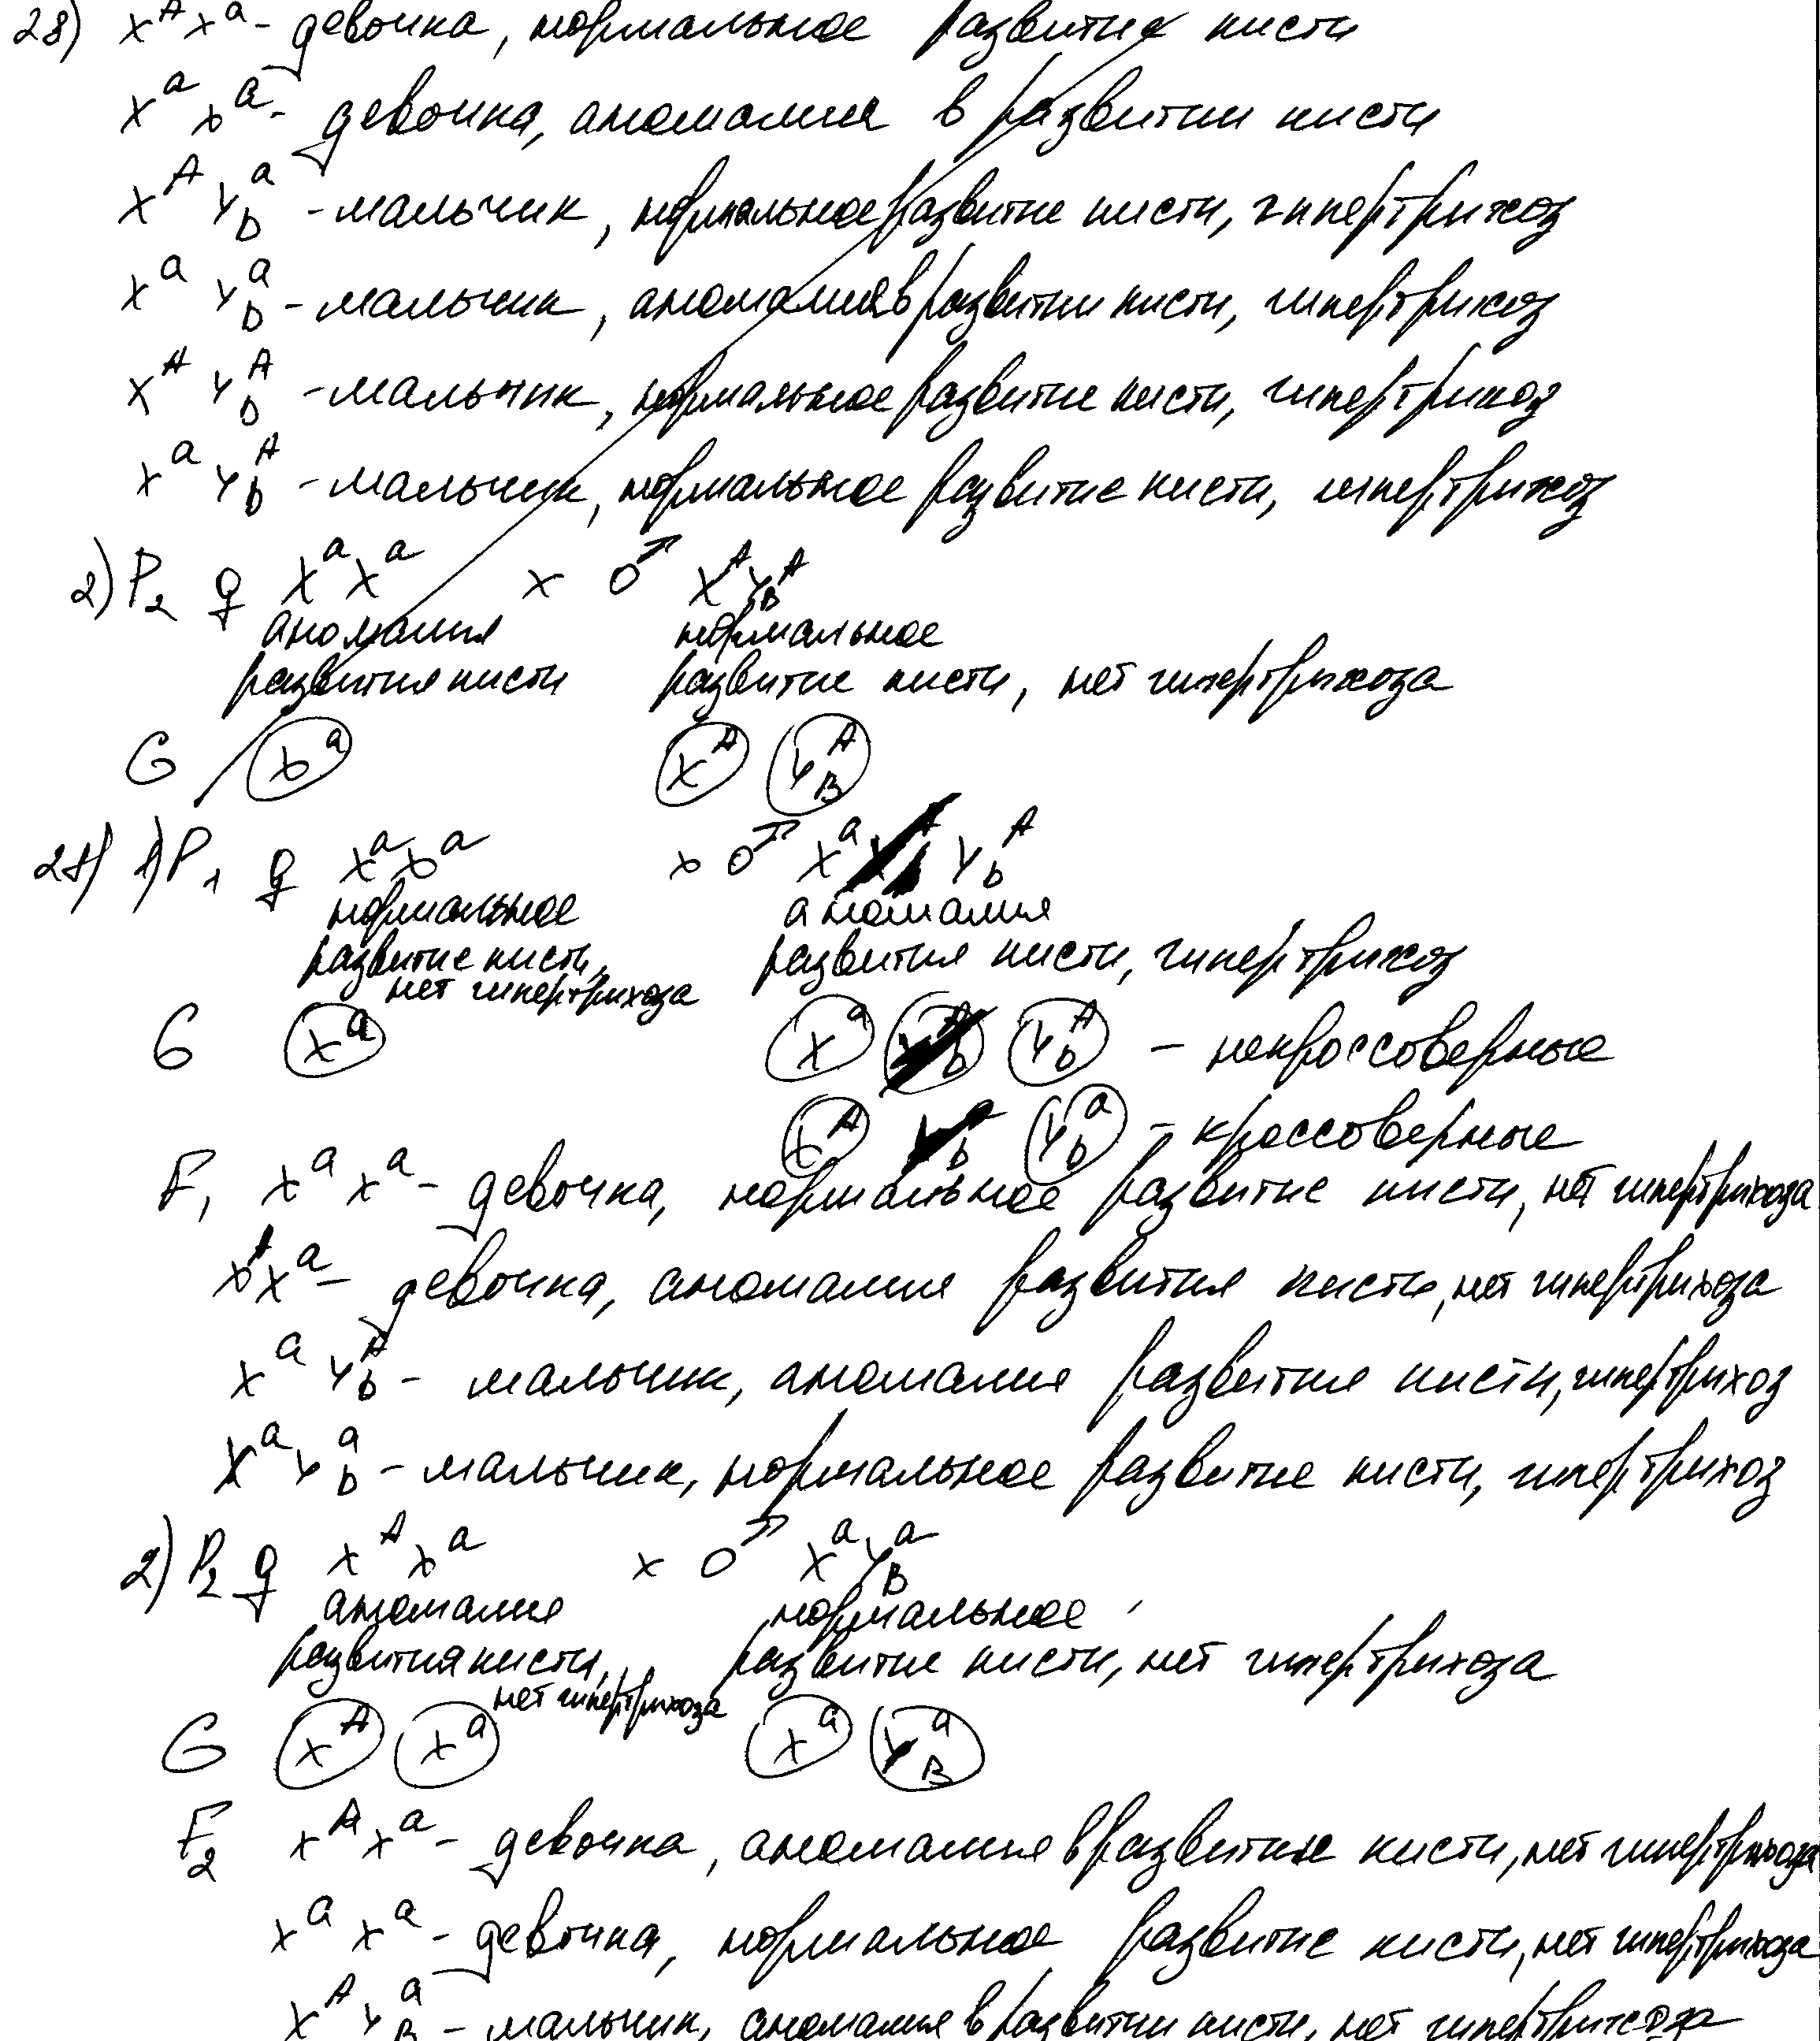 28) XᴬXᵃ - девочка, нормальное развитие кисти
XᵃXᵃ - девочка, аномалия в развитии кисти
XᴬYᵃb - мальчик, нормальное развитие кисти, гипертрихоз
XᵃYᵃb - мальчик, аномалия в развитии кисти, гипертрихоз
XᴬYᴬb - мальчик, нормальное развитие кисти, гипертрихоз
XᵃYᴬb - мальчик, нормальное развитие кисти, гипертрихоз
2) P₂ ♀ XᵃXᵃ x ♂ XᴬYᴬB
аномалия нормальное
развития кисти развитие кисти, нет гипертрихоза
G Xᵃ Xᴬ YᴬB
28) 1) P₁ ♀ XᵃXᵃ x ♂ Xᵃ Yᴬb
нормальное аномалия
развитие кисти, развития кисти, гипертрихоз
нет гипертрихоза
G Xᵃ Xᵃ Yᴬb - некроссоверные
Xᴬ Yᵃb - кроссоверные
F₁ XᵃXᵃ - девочка, нормальное развитие кисти, нет гипертрихоза
XᴬXᵃ - девочка, аномалия развития кисти, нет гипертрихоза
XᵃYᴬb - мальчик, аномалия развития кисти, гипертрихоз
XᵃYᵃb - мальчик, нормальное развитие кисти, гипертрихоз
2) P₂ ♀ XᴬXᵃ x ♂ XᵃYᵃB
аномалия нормальное
развития кисти, развитие кисти, нет гипертрихоза
нет гипертрихоза
G Xᴬ Xᵃ Xᵃ YᵃB
F₂ XᴬXᵃ - девочка, аномалия в развитии кисти, нет гипертрихоза
XᵃXᵃ - девочка, нормальное развитие кисти, нет гипертрихоза
XᴬYᵃB - мальчик, аномалия в развитии кисти, нет гипертрихоза